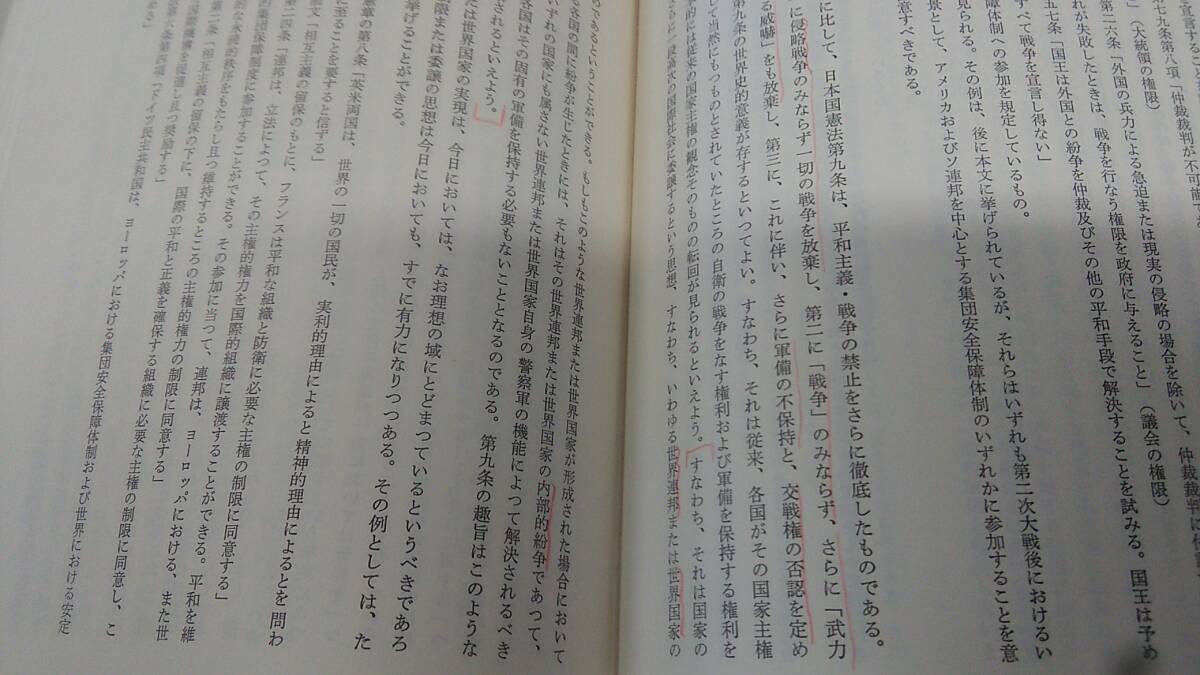 を宣言すること
七九条第八項「仲裁裁判が不可能で
」（大統領の権限）
第二六条「外国の兵力による急迫または現実の侵略の場合を除いて、仲裁裁判に
れが失敗したときは、戦争を行なう権限を政府に与えること」（議会の権限）
五七条「国王は外国との紛争を仲裁及びその他の平和手段で解決することを試みる。国王は予め
すべて戦争を宣言し得ない」
障体制への参加を規定しているもの。
見られる。その例は、後に本文に挙げられているが、それらはいずれも第二次大戦後におけるい
景として、アメリカおよびソ連邦を中心とする集団安全保障体制のいずれかに参加することを意
意すべきである。
に比して、日本国憲法第九条は、平和主義・戦争の禁止をさらに徹底したものである。
に侵略戦争のみならず一切の戦争を放棄し、第二に「戦争」のみならず、さらに「武力
る威嚇」をも放棄し、第三に、これに伴い、さらに軍備の不保持と、交戦権の否認を定め
第九条の世界史的意義が存するといつてよい。すなわち、それは従来、各国がその国家主権
して当然にもつものとされていたところの自衛の戦争をなす権利および軍備を保持する権利を
的には従来の国家主権の観念そのものの転回が見られるといえよう。すなわち、それは国家の
らに一段高次の国際社会に委譲するという思想、すなわち、いわゆる世界連邦または世界国家の
のであるということができる。もしもこのような世界連邦または世界国家が形成された場合において
る各国の間に紛争が生じたときには、それはその世界連邦または世界国家の内部的紛争であつて、
いずれの国家にも属さない世界連邦または世界国家自身の警察軍の機能によつて解決されるべき
各国はその固有の軍備を保持する必要もないこととなるのである。第九条の趣旨はこのような
されるといえよう。
たは世界国家の実現は、今日においては、なお理想の域にとどまつているというべきであろ
限または委譲の思想は今日においても、すでに有力になりつつある。その例としては、た
挙げることができる。
憲章の第八条「英米両国は、世界の一切の国民が、実利的理由によると精神的理由によるとを問わ
に至ることを要すると信ずる」
文「相互主義の留保のもとに、フランスは平和な組織と防衛に必要な主権の制限に同意する」
二四条「連邦は、立法によつて、その主権的権力を国際的組織に譲渡することができる。平和を維
的集団保障制度に参加することができる。その参加に当つて、連邦は、ヨーロッパにおける、また世
的な永続的秩序をもたらし且つ維持するところの主権的権力の制限に同意する」
一条「相互主義の留保の下に、国際の平和と正義を確保する組織に必要な主権の制限に同意し、こ
る国際機構を促進し且つ奨励する」
条第四項「ドイツ民主共和国は、ヨーロッパにおける集団安全保障体制および世界における安定